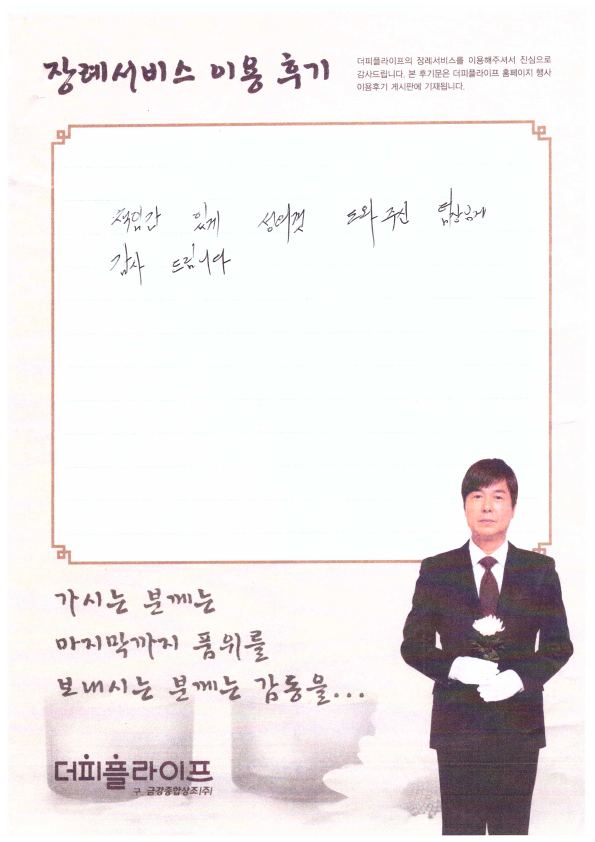 장례서비스 이용 후기
더피플라이프의 장례서비스를 이용해주셔서 진심으로
감사드립니다. 본 후기문은 더피플라이프 홈페이지 행사
이용후기 게시판에 기재됩니다.
책임감 있게 성의껏 도와 주신 팀장님께
감사 드립니다
가시는 분께는
마지막까지 품위를
보내시는 분께는 감동을...
더피플라이프
구. 금강종합상조(주)